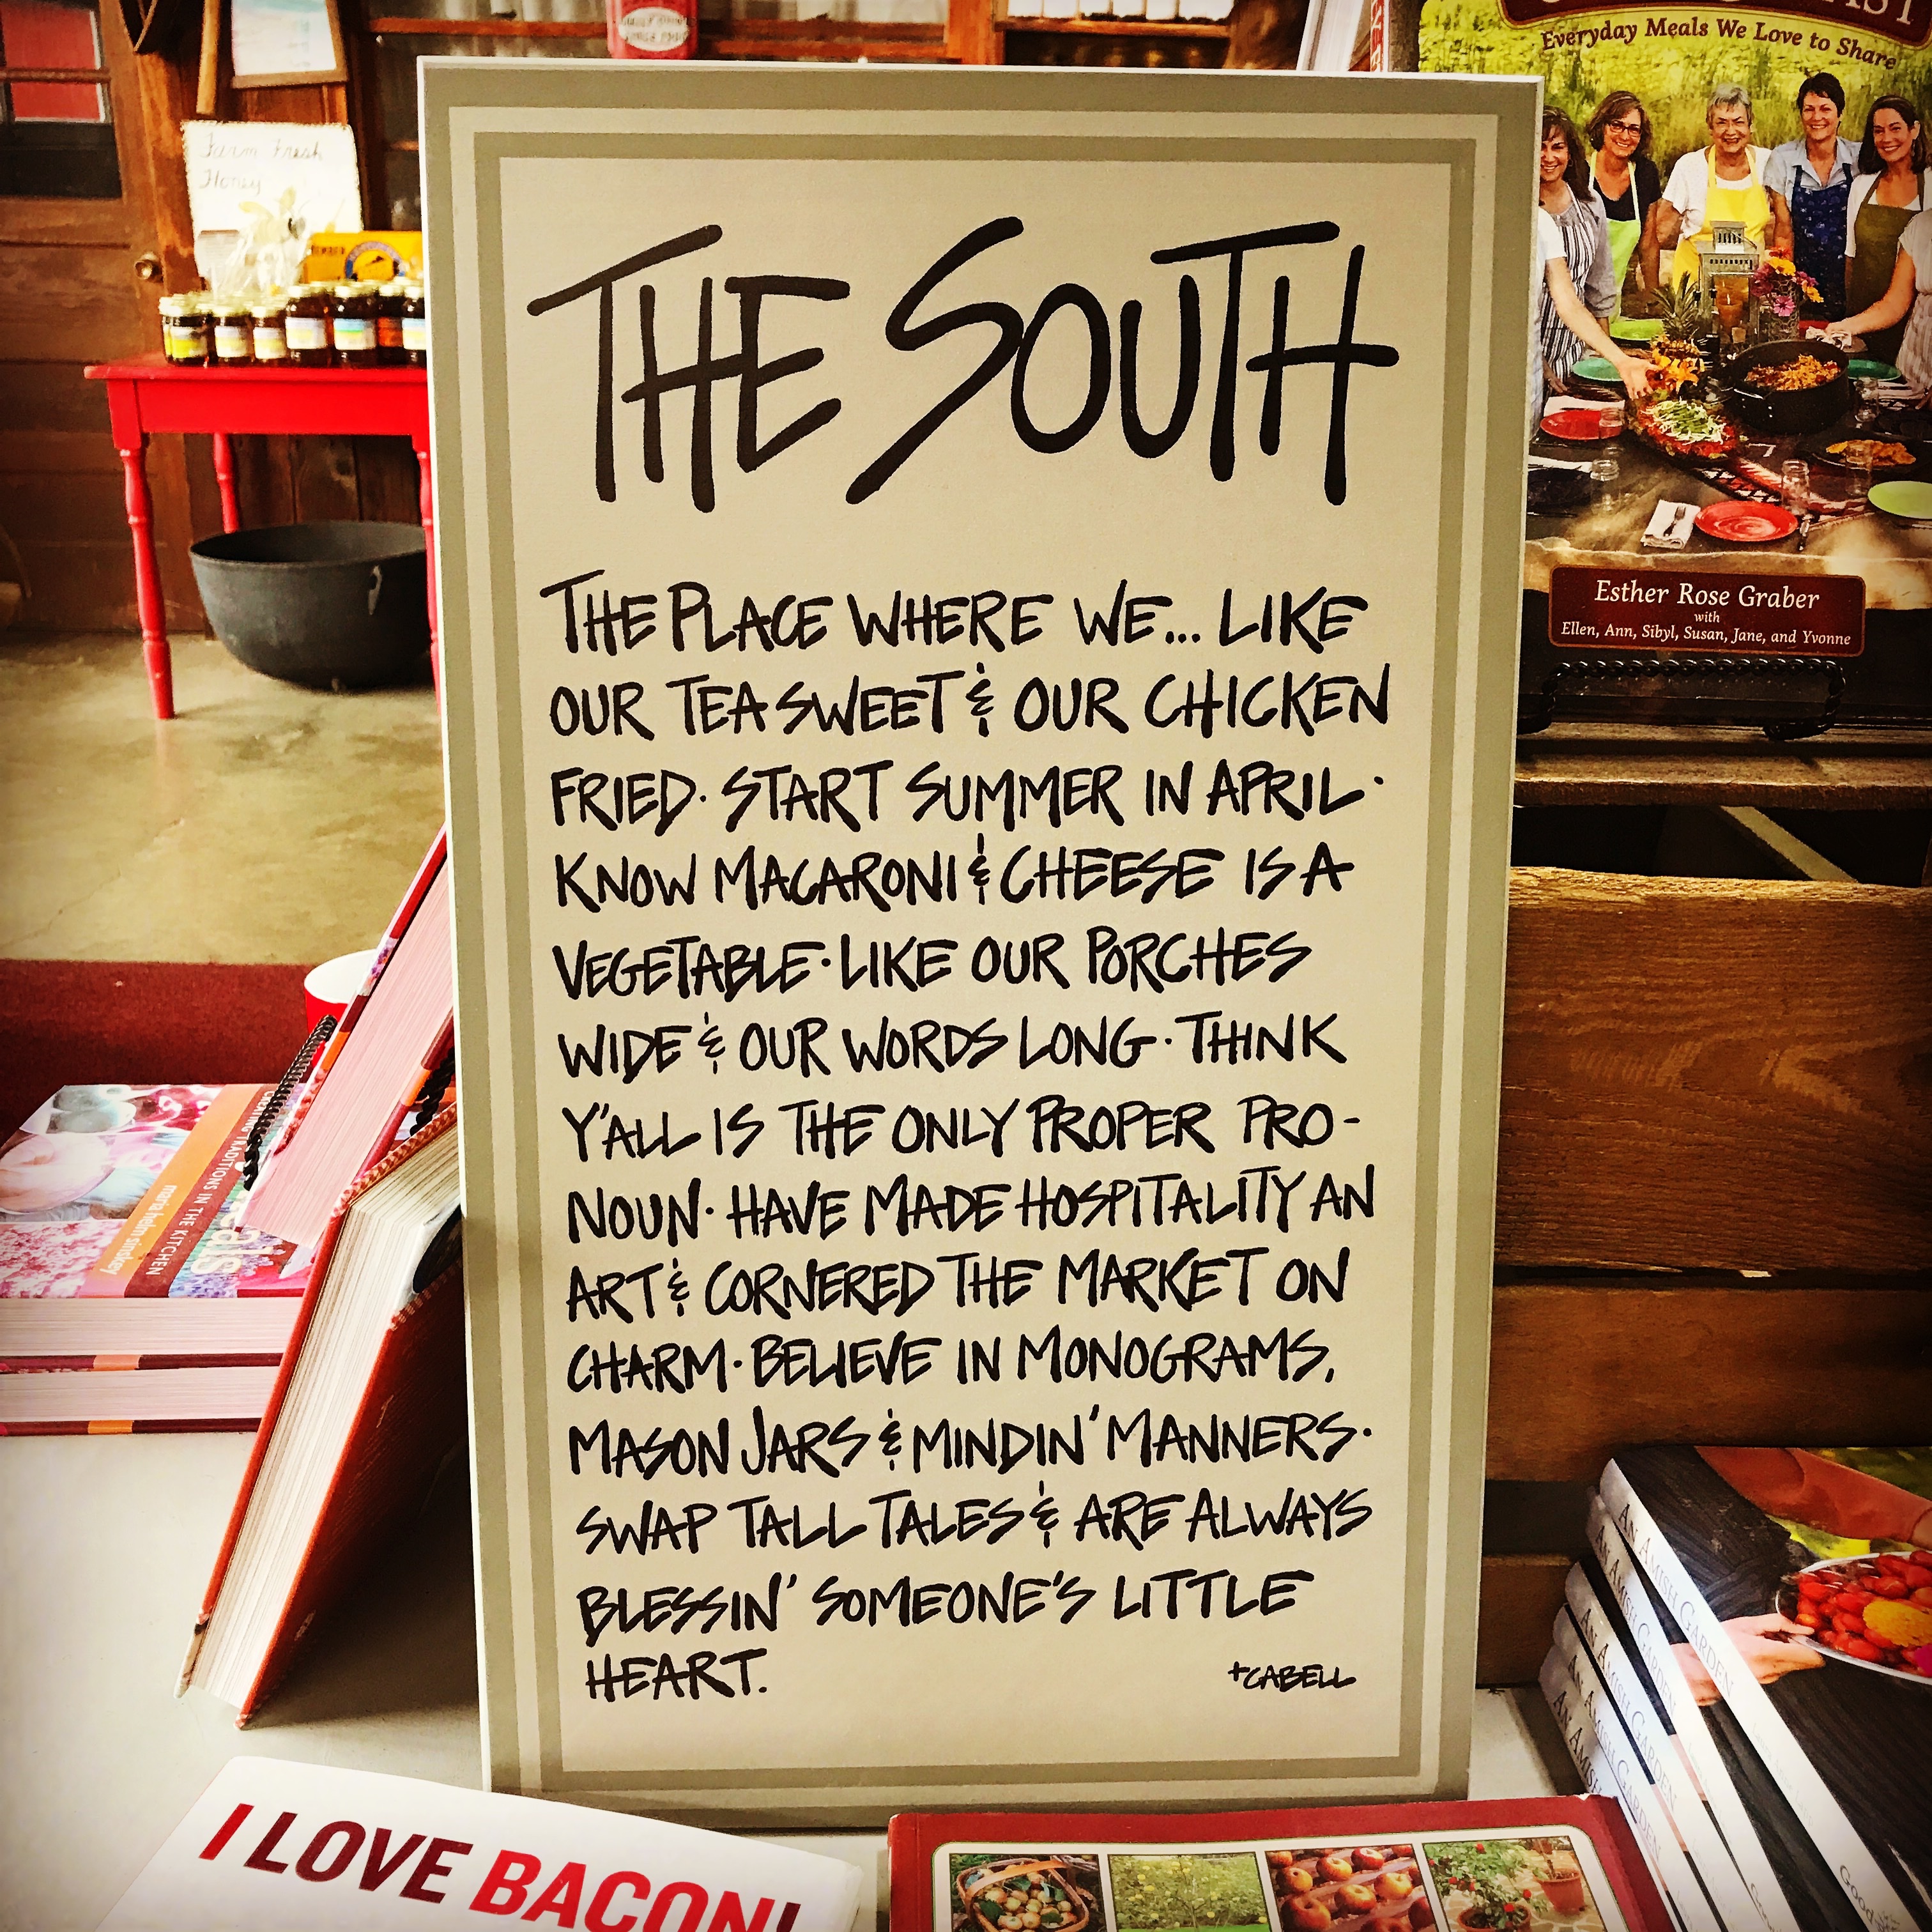 Farm Fresh
Honey
Everyday Meals We Love to Share
Esther Rose Graber
with
Ellen, Ann, Sibyl, Susan, Jane, and Yvonne
THE SOUTH
THE PLACE WHERE WE... LIKE
OUR TEA SWEET & OUR CHICKEN
FRIED · START SUMMER IN APRIL ·
KNOW MACARONI & CHEESE IS A
VEGETABLE · LIKE OUR PORCHES
WIDE & OUR WORDS LONG · THINK
Y'ALL IS THE ONLY PROPER PRO-
NOUN · HAVE MADE HOSPITALITY AN
ART & CORNERED THE MARKET ON
CHARM · BELIEVE IN MONOGRAMS,
MASON JARS & MINDIN' MANNERS ·
SWAP TALL TALES & ARE ALWAYS
BLESSIN' SOMEONE'S LITTLE
HEART.
+CABELL
TRADITIONS IN THE KITCHEN
I LOVE BACON!
AN AMISH GARDEN
AN AMISH GARDEN
AN AMISH GARDEN
AN AMISH